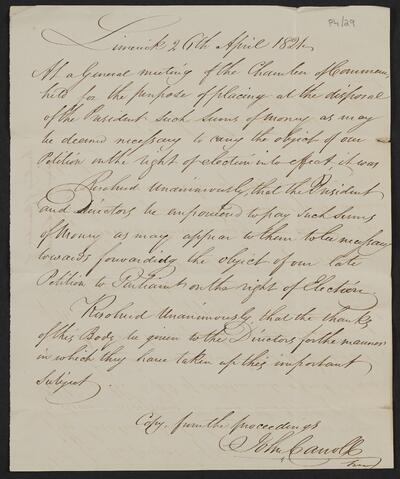 P4/29
Limerick 26th April 1824
At a General meeting of the Chamber of Commerce
held for the purpose of placing at the disposal
of the President such sums of money as may
be deemed necessary to carry the object of our
Petition on the right of election into effect, it was
Resolved Unanimously, that the President
and Directors be empowered to pay such Sums
of Money as may appear to them to be necessary
towards forwarding the object of our late
Petition to Parliament on the right of Election
Resolved Unanimously that the thanks
of this Body be given to the Directors for the manner
in which they have taken up this important
Subject
Copy from the proceedings
John Carroll